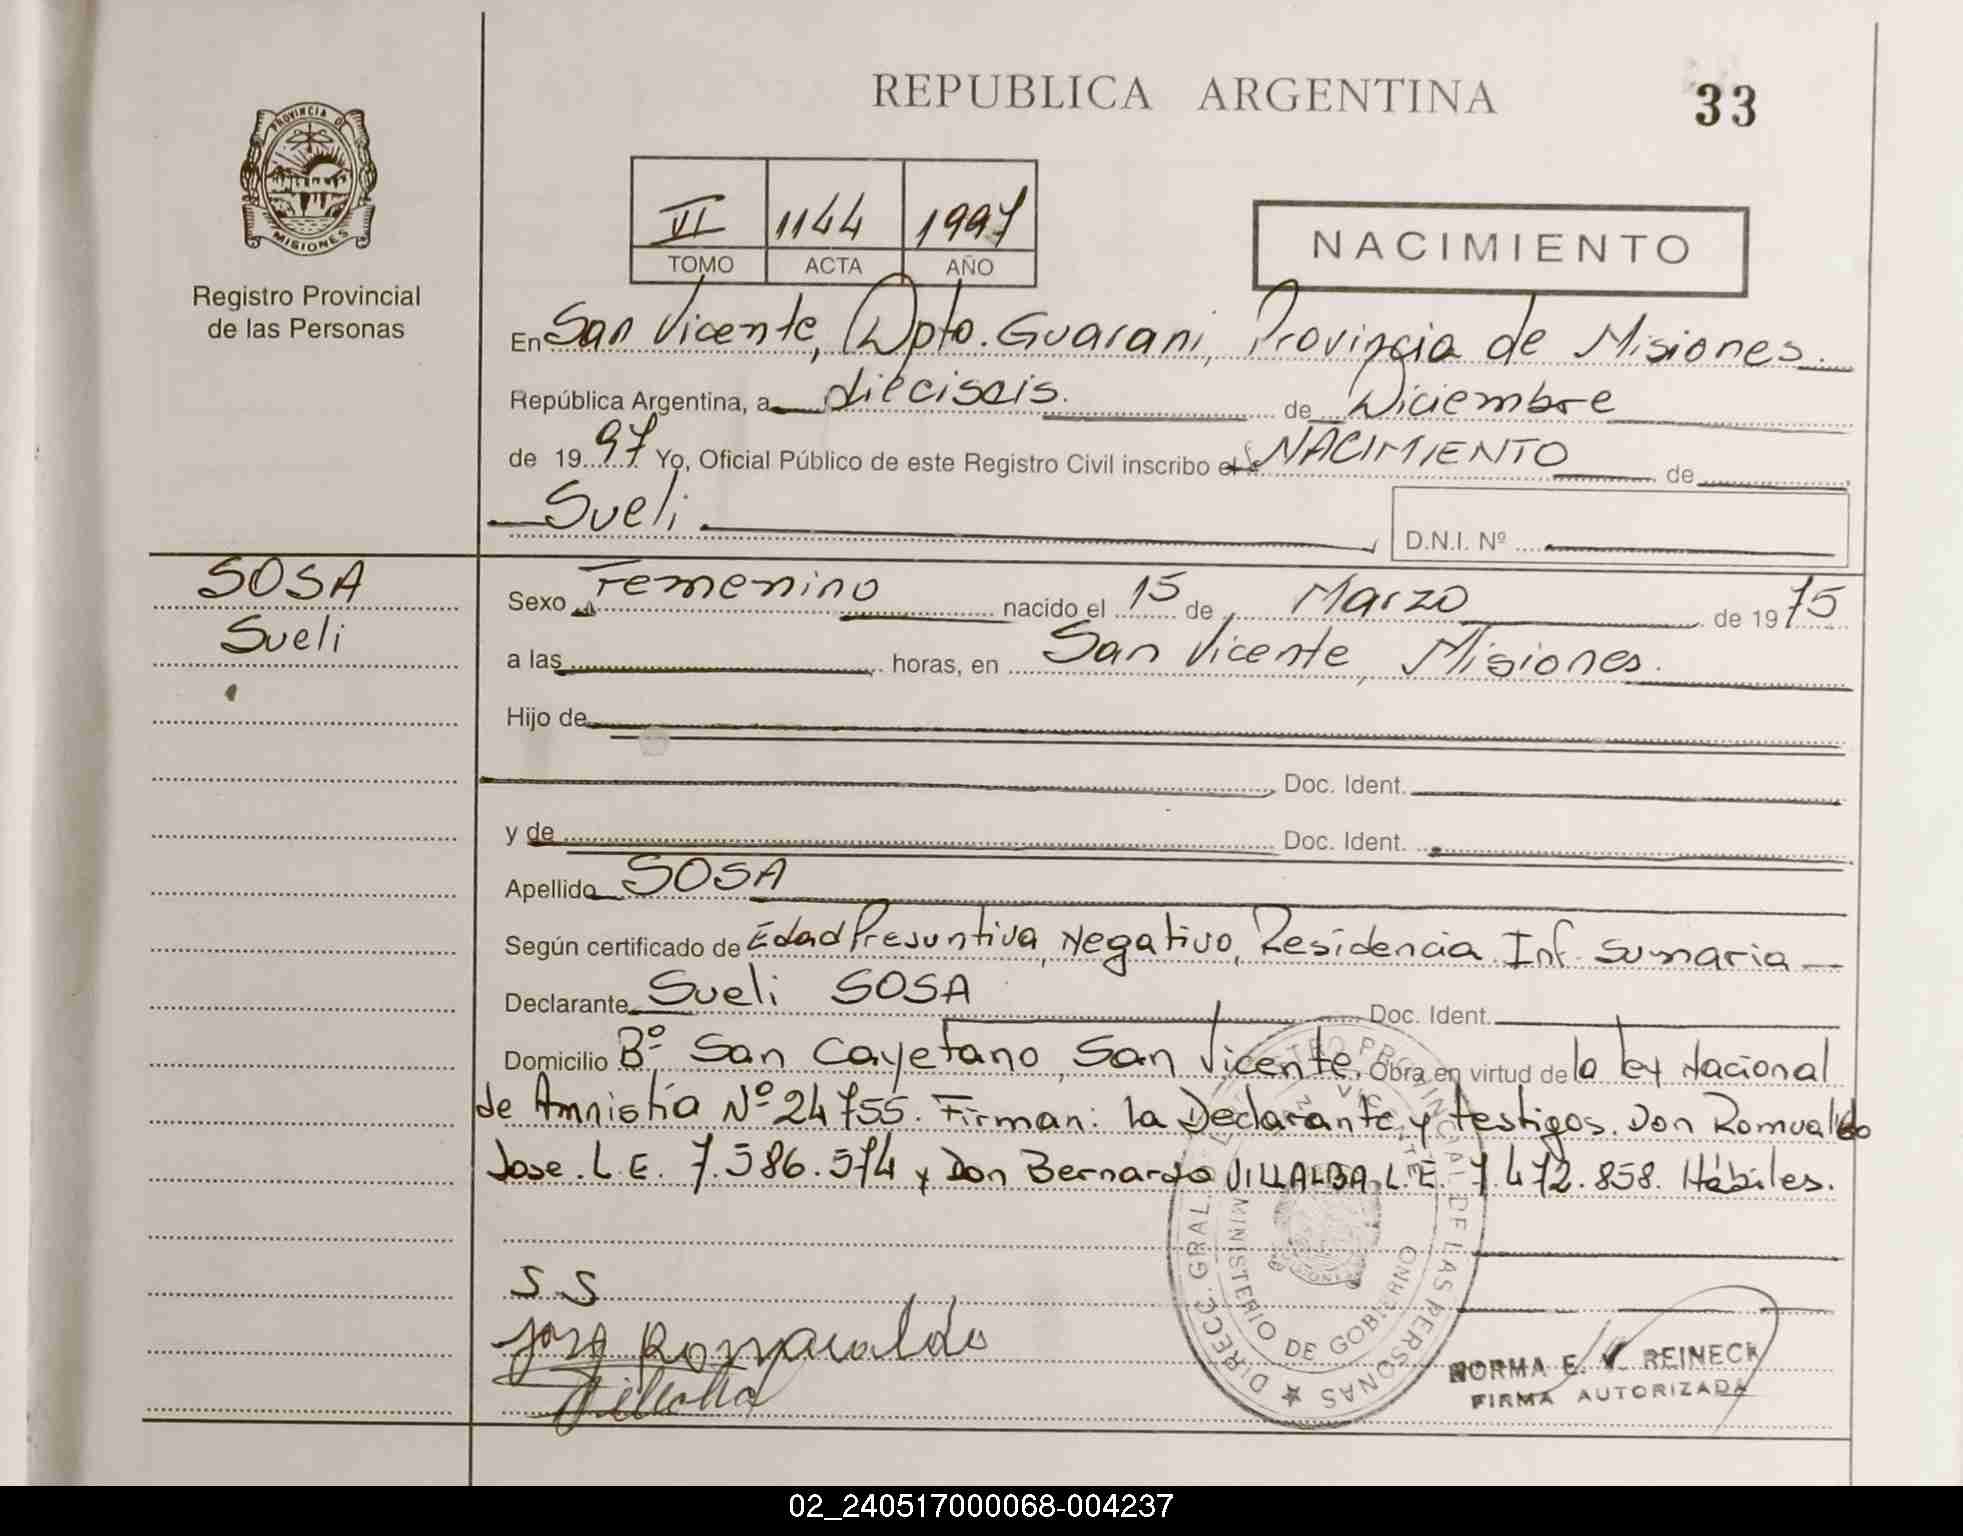 REPUBLICA ARGENTINA
33
PROVINCIA DE
MISIONES
Registro Provincial
de las Personas
VI 1144 1997
TOMO ACTA AÑO
NACIMIENTO
En San Vicente, Dpto. Guarani, Provincia de Misiones.
República Argentina, a dieciseis. de Diciembre
de 1997 Yo, Oficial Público de este Registro Civil inscribo el NACIMIENTO de
Sueli
D.N.I. Nº
SOSA
Sueli
Sexo Femenino nacido el 15 de Marzo de 1975
a las horas, en San Vicente, Misiones.
Hijo de
Doc. Ident.
y de Doc. Ident.
Apellido SOSA
Según certificado de Edad Presuntiva, Negativo, Residencia Inf. Sumaria
Declarante Sueli SOSA Doc. Ident.
Domicilio Bº San Cayetano, San Vicente. Obra en virtud de la ley Nacional
de Amnistía Nº 24755. Firman: la Declarante y testigos. Don Romualdo
Jose. L.E. 7.586.574 y Don Bernardo VILLALBA L.E. 7.472.858. Hábiles.
S. S
Jose Romualdo
Villalba
DIRECC. GRAL. REGISTRO PROVINCIAL DE LAS PERSONAS
MINISTERIO DE GOBIERNO
NORMA E. V. REINECK
FIRMA AUTORIZADA
02_240517000068-004237